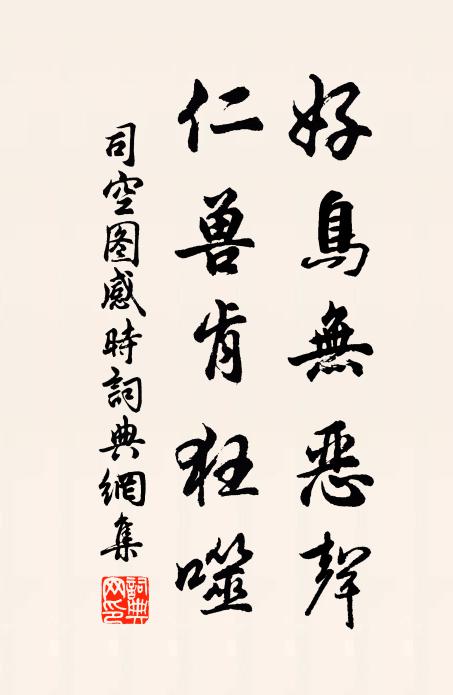 好鳥無惡聲
仁兽肯狂噬
司空图感時詞典網集
詞典网印